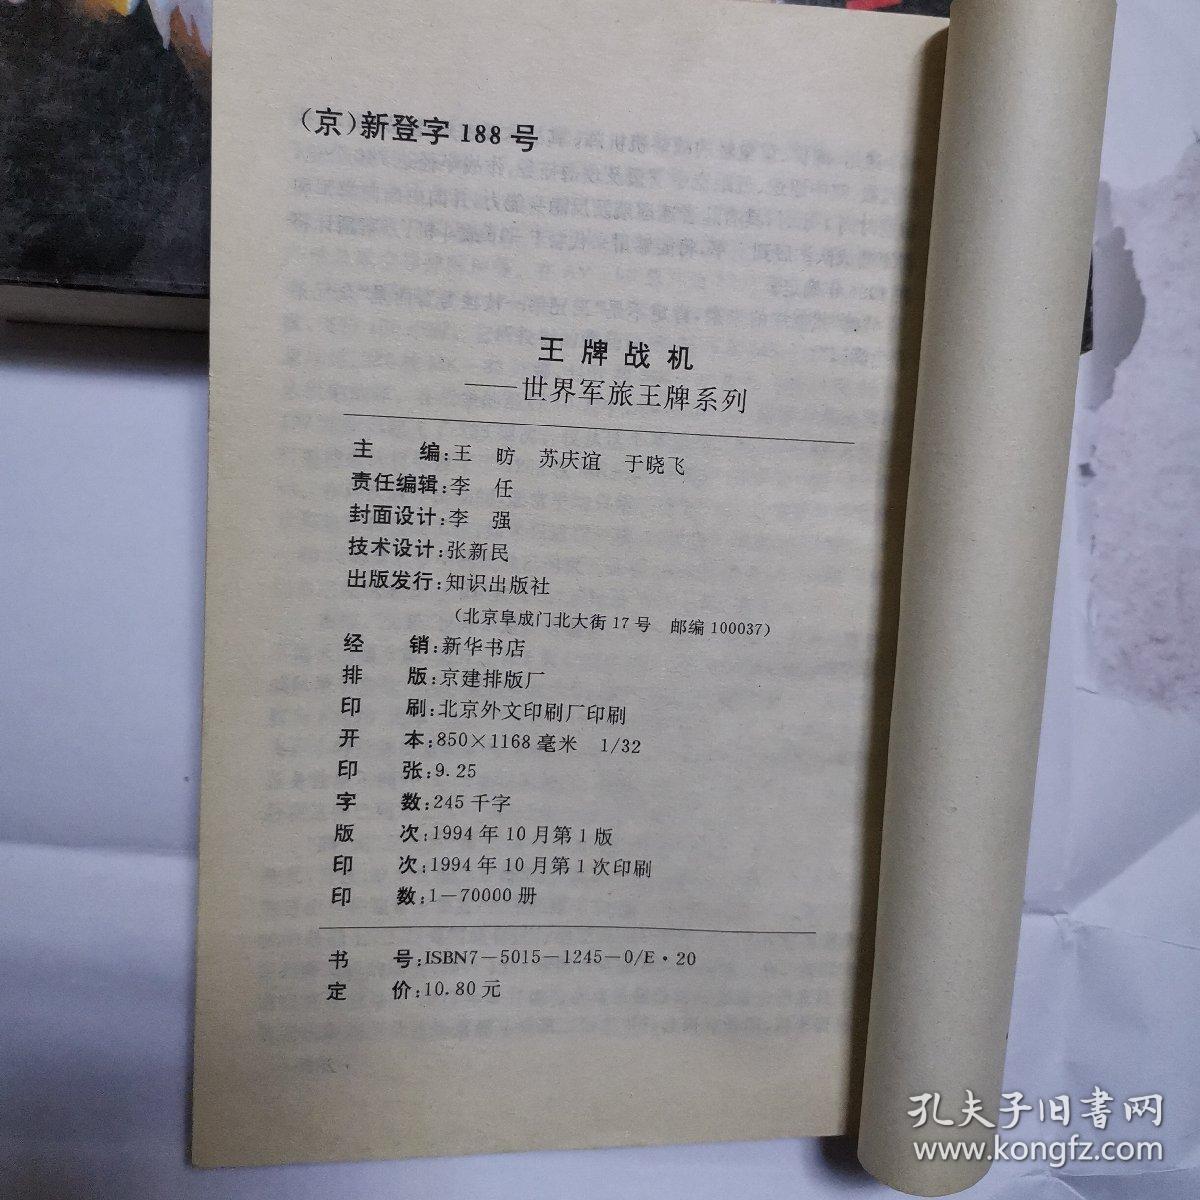 （京）新登字 188 号
王牌战机
——世界军旅王牌系列
主 编：王 昉 苏庆谊 于晓飞
责任编辑：李 任
封面设计：李 强
技术设计：张新民
出版发行：知识出版社
（北京阜成门北大街 17 号 邮编 100037）
经 销：新华书店
排 版：京建排版厂
印 刷：北京外文印刷厂印刷
开 本：850×1168 毫米 1/32
印 张：9.25
字 数：245 千字
版 次：1994 年 10 月第 1 版
印 次：1994 年 10 月第 1 次印刷
印 数：1—70000 册
书 号：ISBN7-5015-1245-0/E·20
定 价：10.80 元
孔夫子旧书网
www.kongfz.com